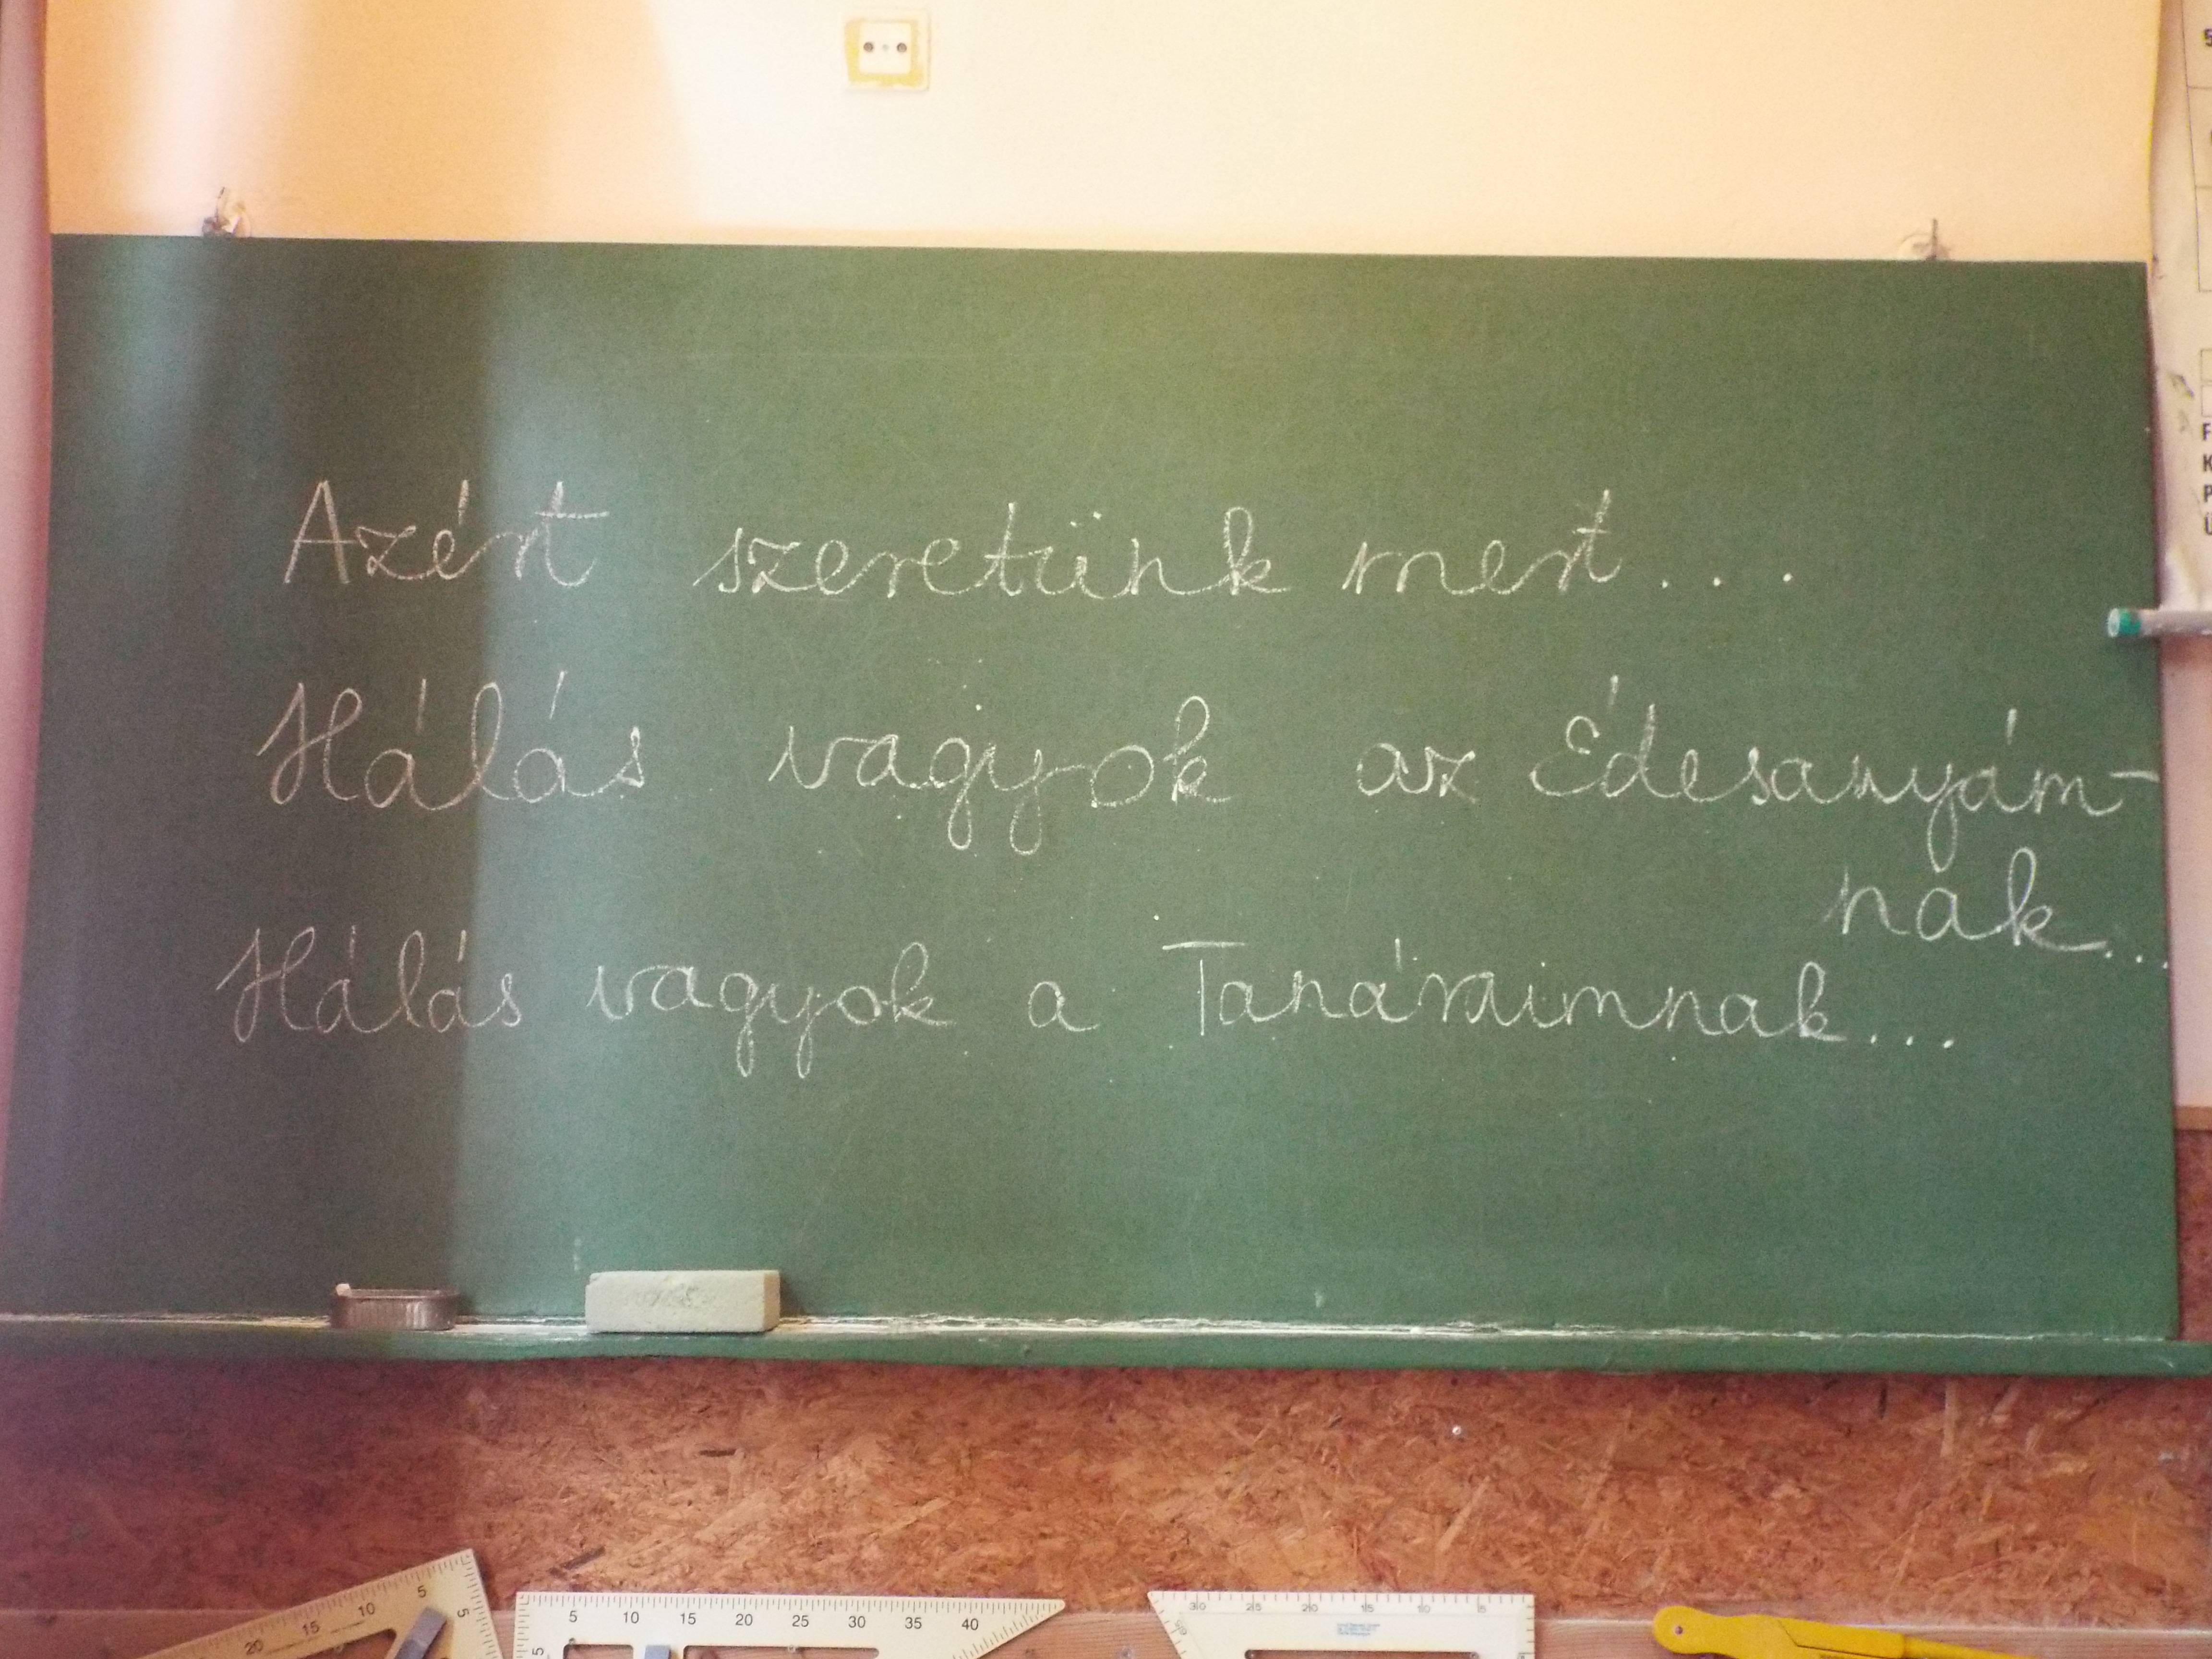 Azért szeretünk mert....
Hálás vagyok az Édesanyám-
nak...
Hálás vagyok a Tanáraimnak...
20 15 10 5 5
5 10 15 20 25 30 35 40
30 25 20 15 10 5